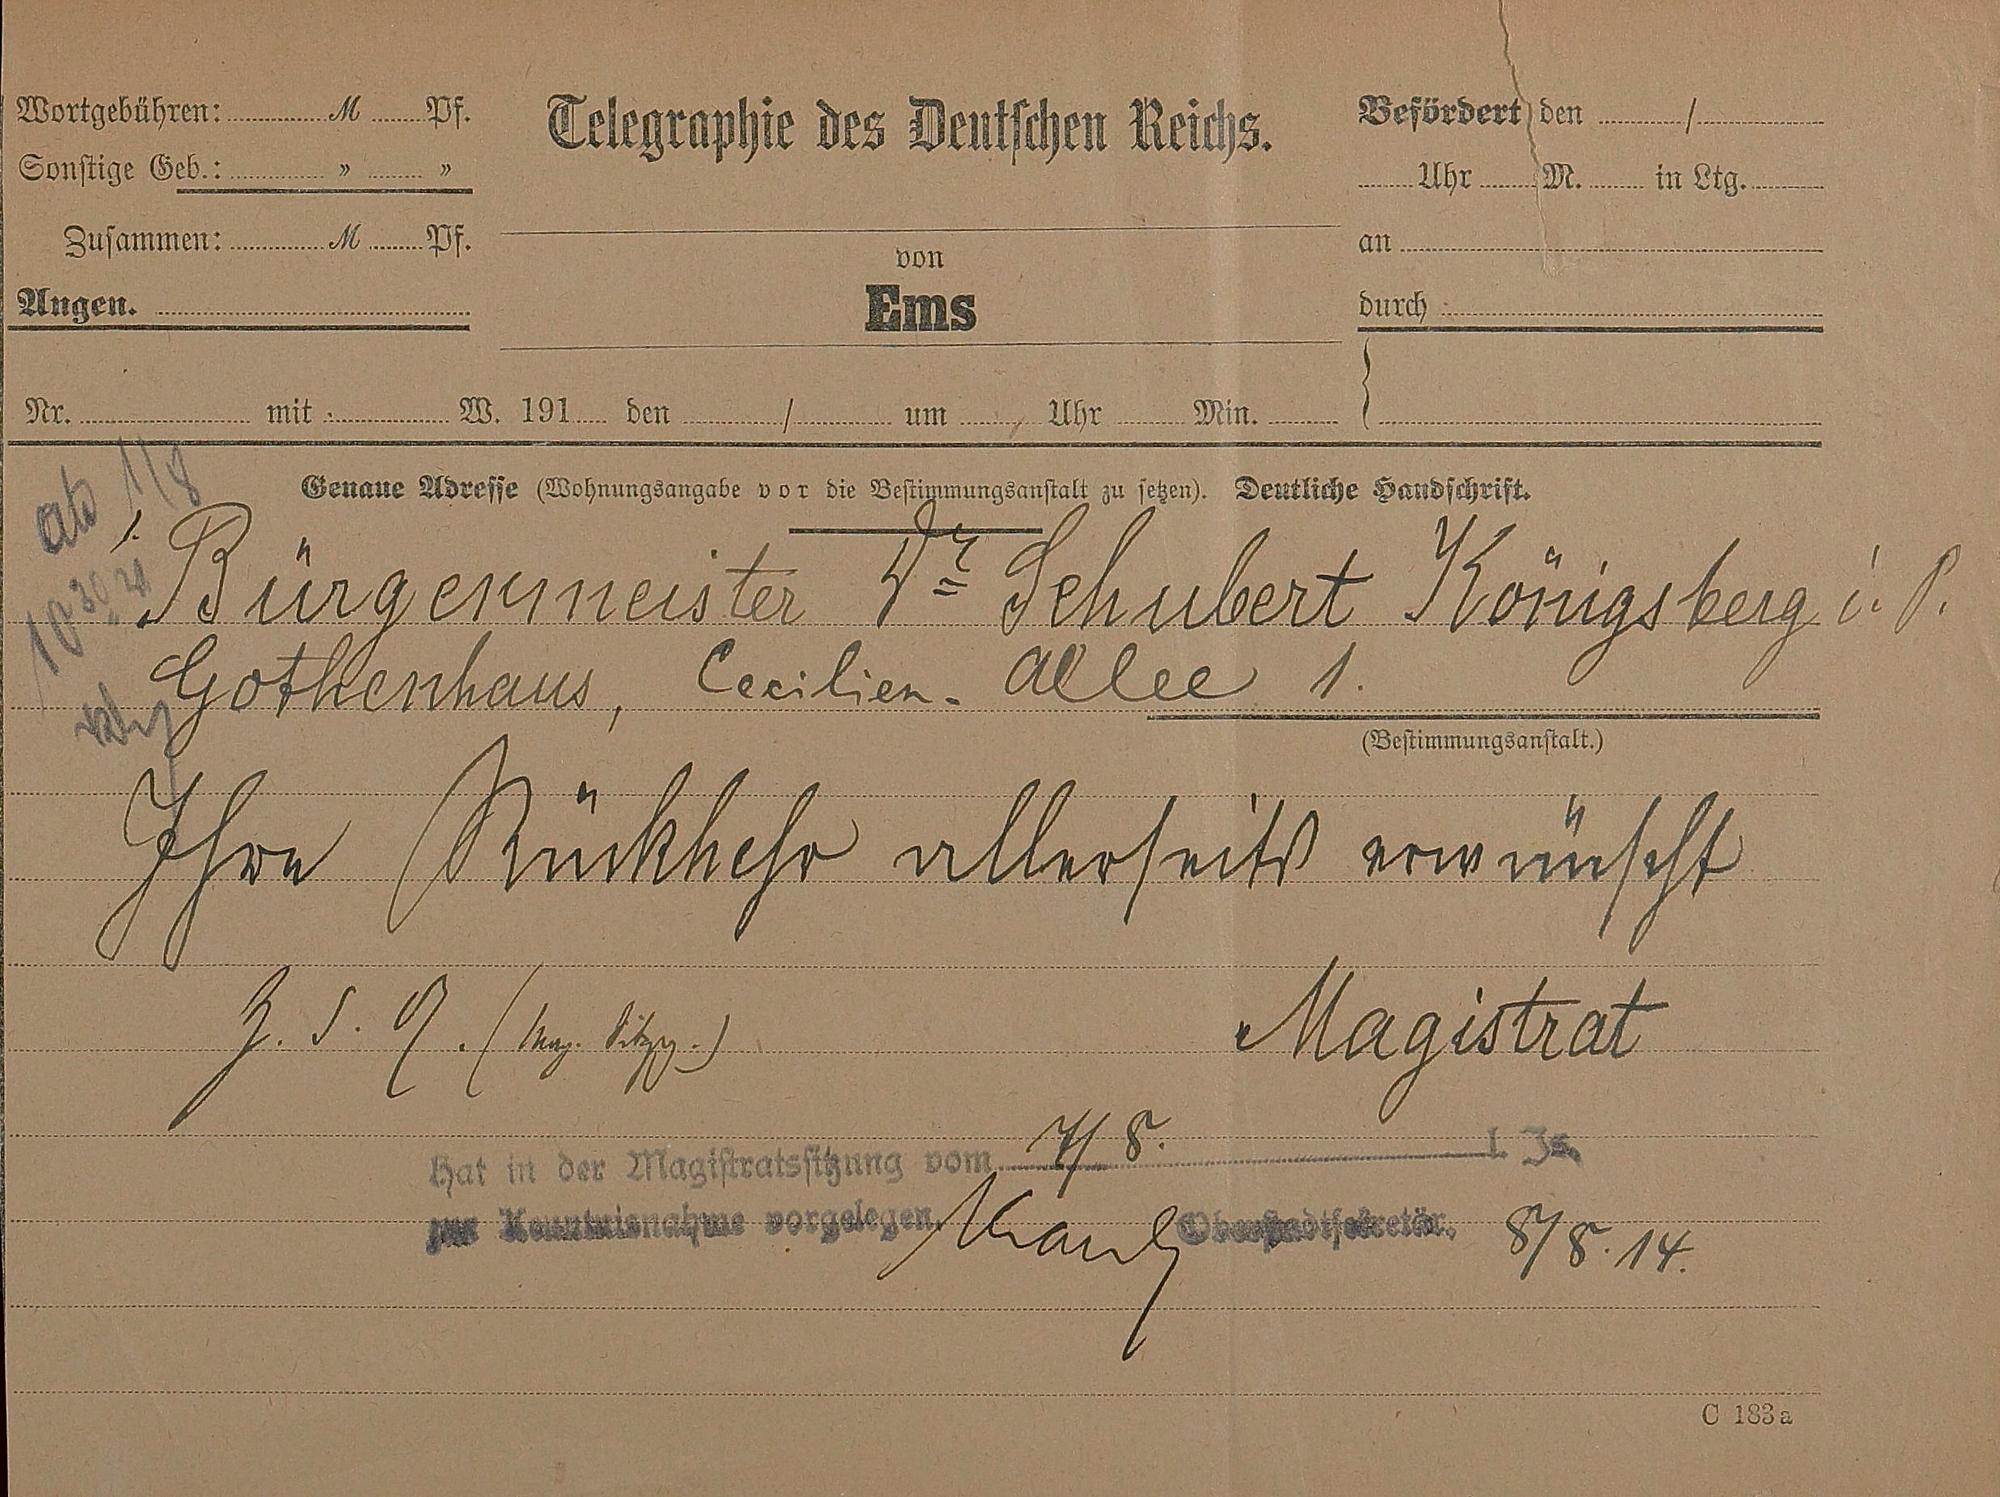 Wortgebühren: M Pf.
Sonstige Geb.: " "
Zusammen: M Pf.
Angen.
Telegraphie des Deutschen Reichs.
von
Ems
Befördert den /
Uhr M. in Ltg.
an
durch
Nr. mit W. 191 den / um Uhr Min.
ab 1/8
10 30
Genaue Adresse (Wohnungsangabe vor die Bestimmungsanstalt zu setzen). Deutliche Handschrift.
Bürgermeister Dr Schubert Königsberg i. P.
Gothenhaus, Cecilien-Allee 1.
(Bestimmungsanstalt.)
Ihre Rückkehr allerseits erwünscht
Magistrat
Z. S. (Mag. Sitzg.)
Hat in der Magistratssitzung vom 7/8. l. Js.
zur Kenntnisnahme vorgelegen. Oberstadtsekretär. 8/8.14.
C 183a